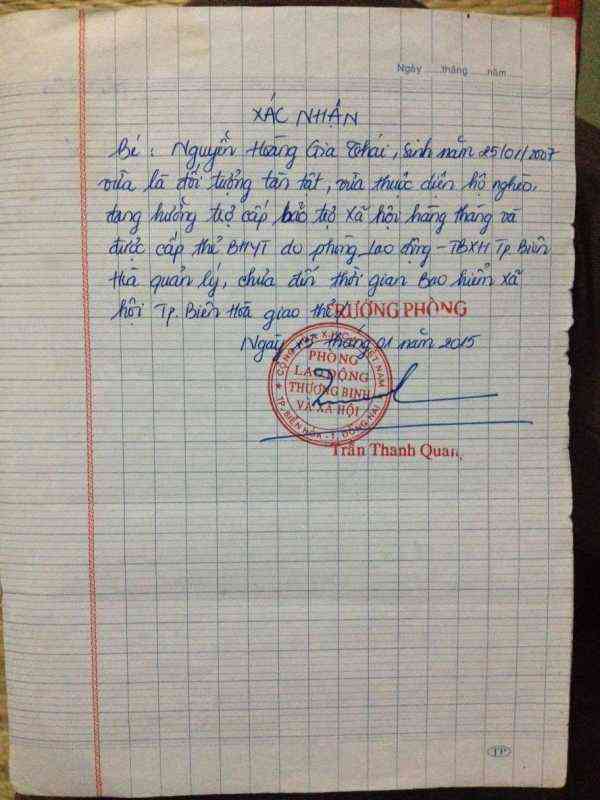 Ngày ......tháng......năm......
XÁC NHẬN
Bé : Nguyễn Hoàng Gia Thái, Sinh năm 25/01/2007
vừa là đối tượng tàn tật, vừa thuộc diện hộ nghèo,
đang hưởng trợ cấp bảo trợ xã hội hàng tháng và
được cấp thẻ BHYT do phòng Lao động - TBXH Tp. Biên
Hòa quản lý, chưa đến thời gian Bảo hiểm xã
hội Tp. Biên Hòa giao thẻ./
TRƯỞNG PHÒNG
Ngày tháng 01 năm 2015
PHÒNG
LAO ĐỘNG
THƯƠNG BINH
VÀ XÃ HỘI
TP. BIÊN HÒA - T. ĐỒNG NAI
Trần Thanh Quan
TP